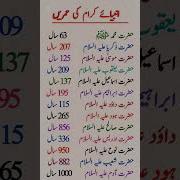 انبیائے کرام کی عمریں
حضرت محمد ﷺ 63 سال
حضرت زکریا علیہ السلام 207 سال
حضرت موسیٰ علیہ السلام 125 سال
حضرت یعقوب علیہ السلام 209 سال
حضرت اسماعیل علیہ السلام 137 سال
حضرت ابراہیم علیہ السلام 195 سال
حضرت داؤد علیہ السلام 115 سال
حضرت علیہ السلام 856 سال
حضرت ادریس علیہ السلام سال
حضرت نوح علیہ السلام 950 سال
حضرت شعیب علیہ السلام 882 سال
حضرت آدم علیہ السلام 1000 سال